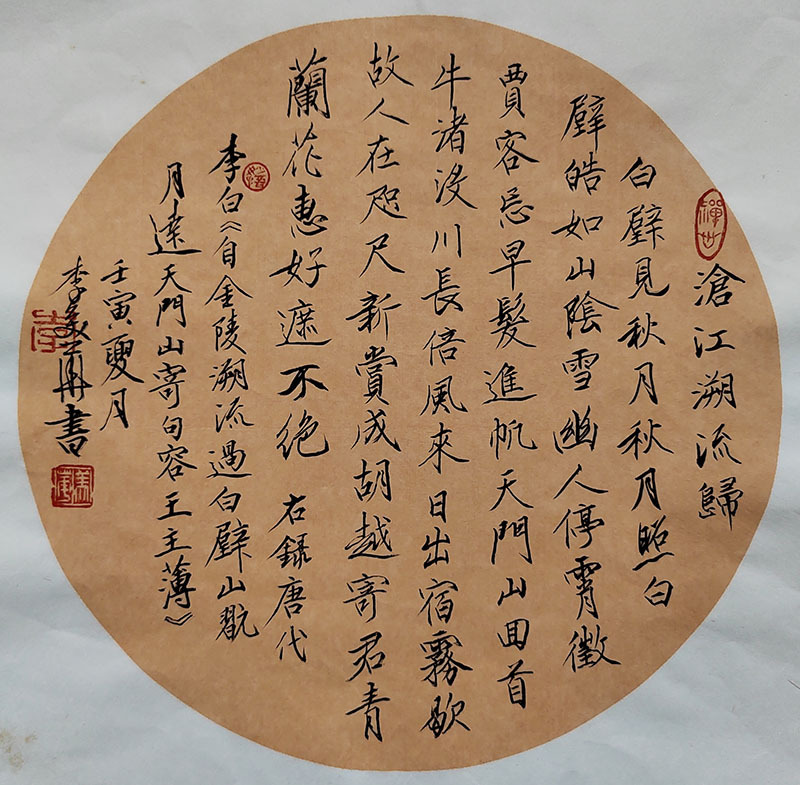 滄江溯流歸
白壁見秋月秋月照白
壁皓如山陰雪幽人停霄徵
賈客忌早髮進帆天門山回首
牛渚沒川長信風來日出宿霧歇
故人在咫尺新賞成胡越寄君青
蘭花惠好遮不絕 右錄唐代
李白《自金陵溯流過白壁山翫
月達天門山寄句容王主薄》
壬寅夏月
李 書